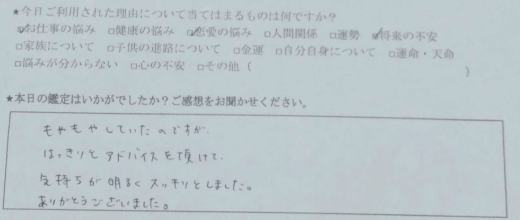 ★今日ご利用された理由について当てはまるものは何ですか？
☑お仕事の悩み □健康の悩み ☑恋愛の悩み □人間関係 □運勢 ☑将来の不安
□家族について □子供の進路について □金運 □自分自身について □運命・天命
□悩みが分からない □心の不安 □その他（ ）
★本日の鑑定はいかがでしたか？ご感想をお聞かせください。
もやもやしていたのですが、
はっきりとアドバイスを頂けて、
気持ちが明るくスッキリとしました。
ありがとうございました。